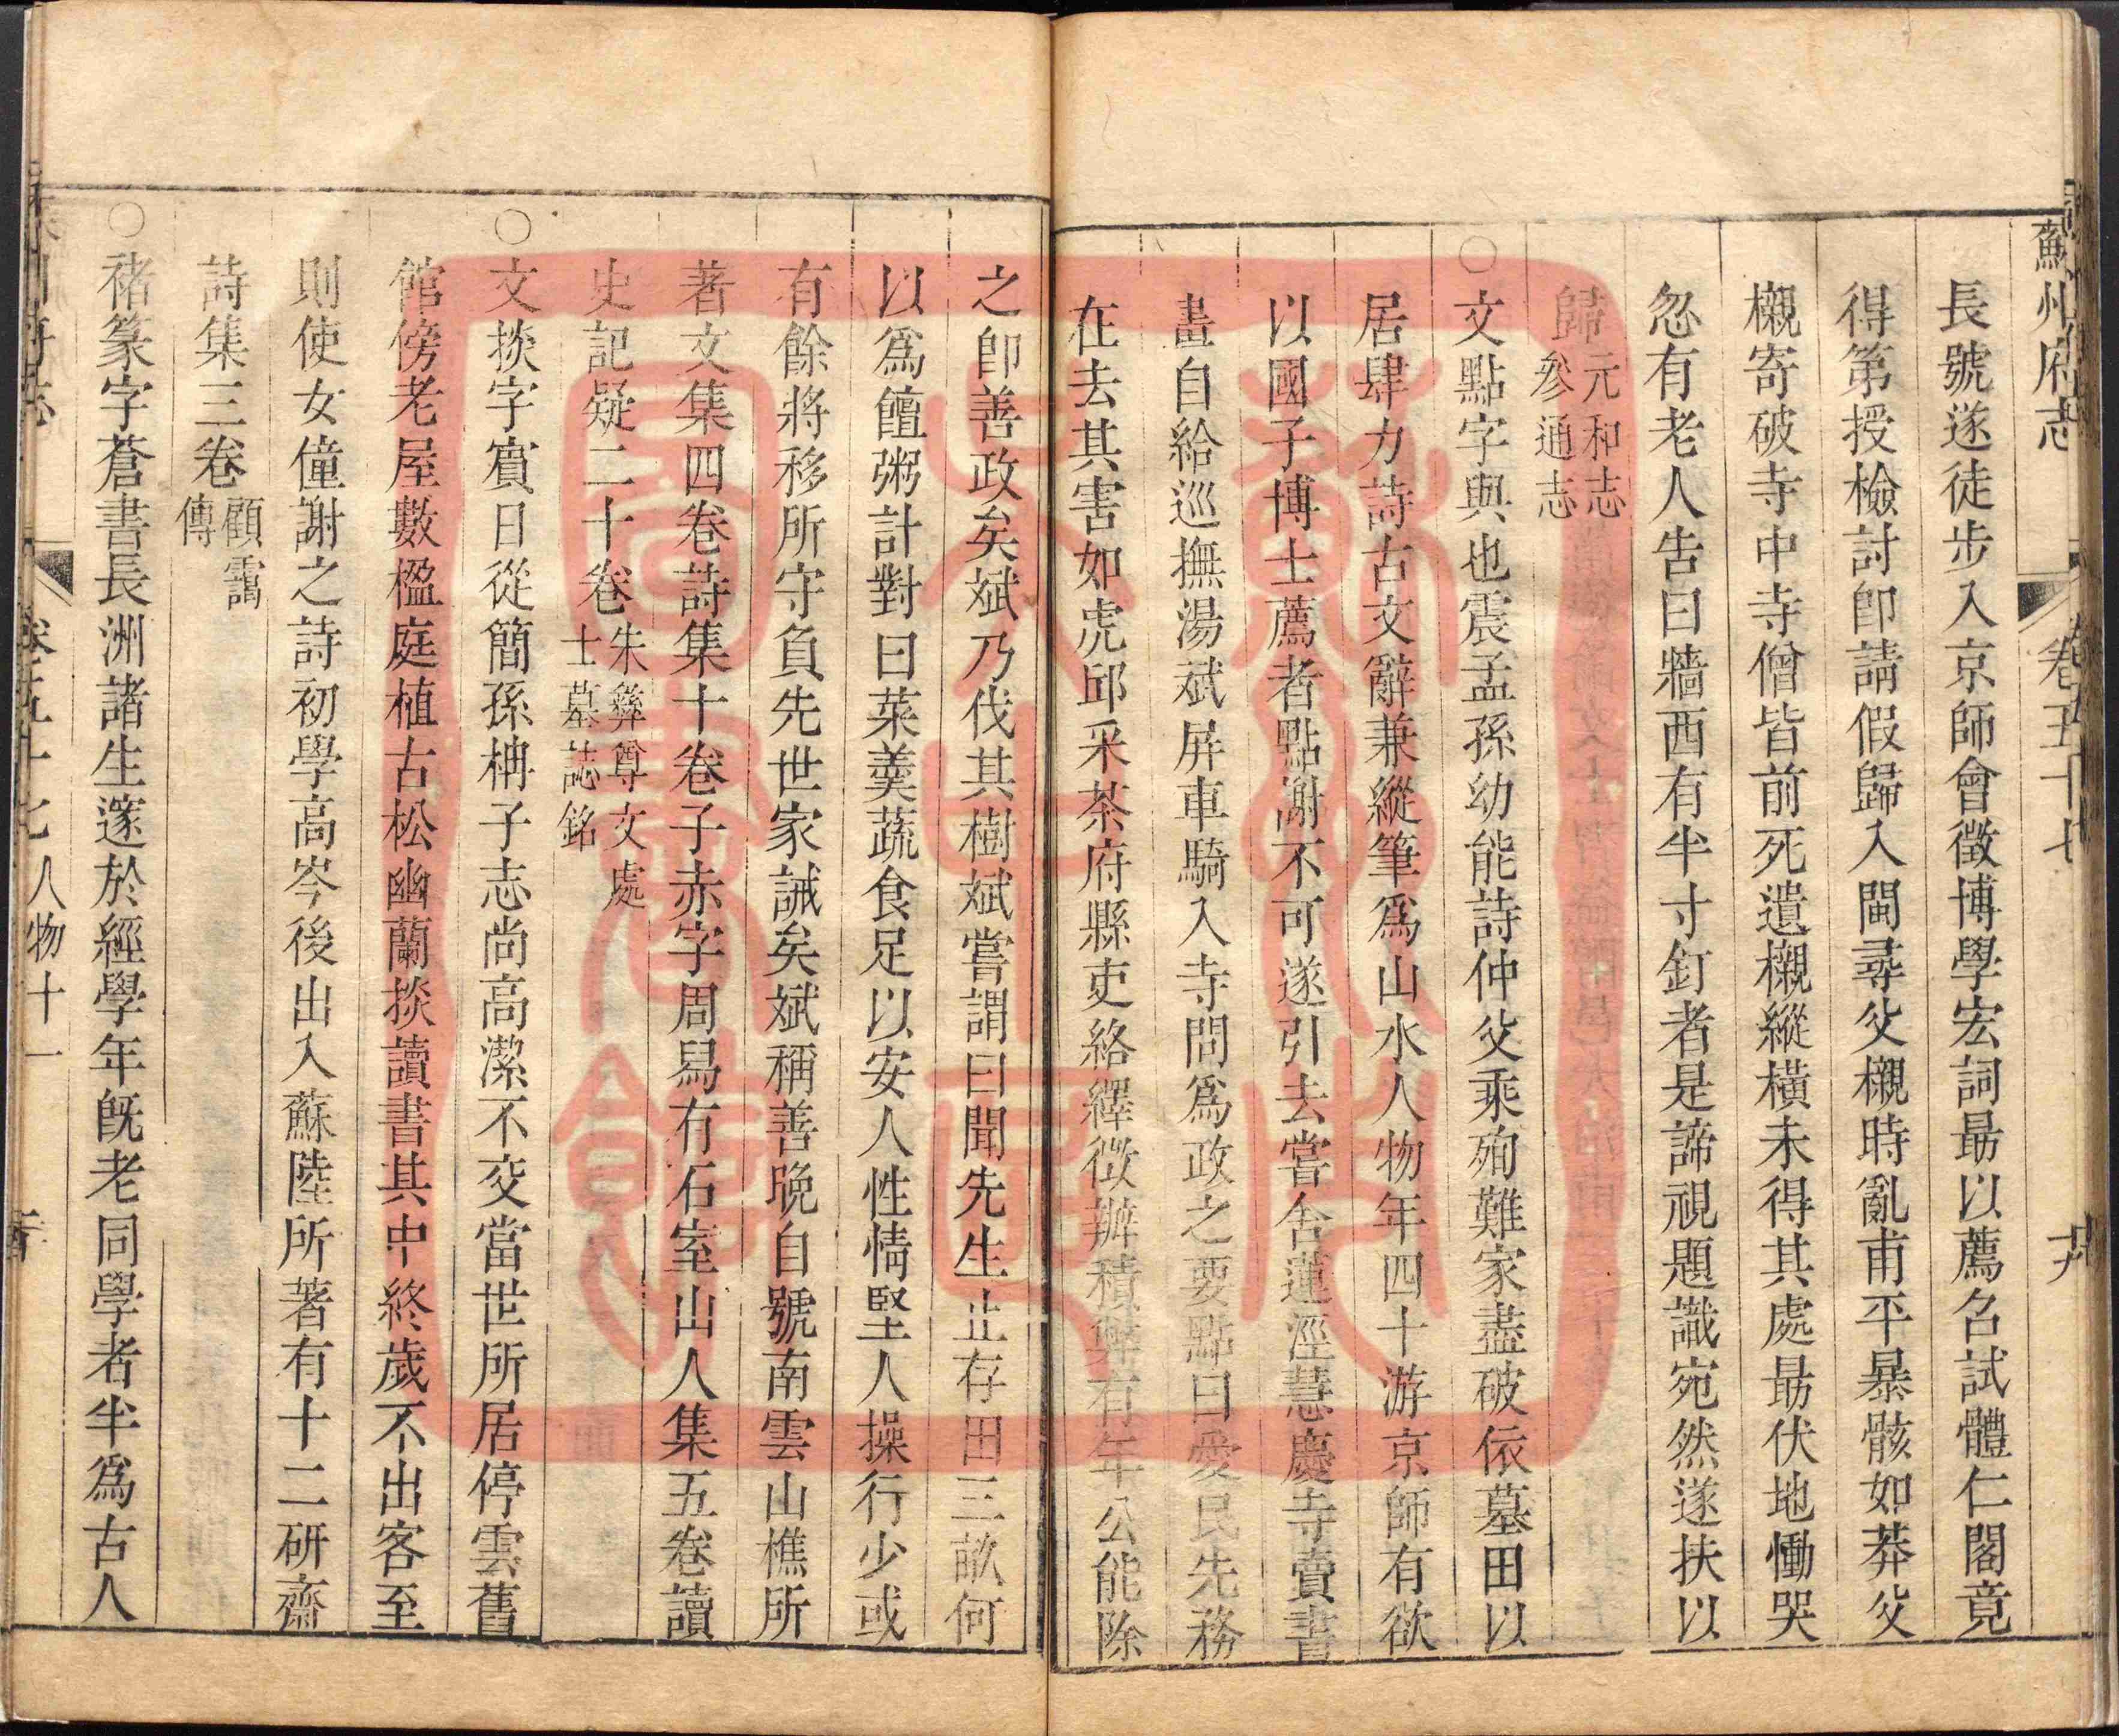 蘇州府志 卷五十七
長號遂徒步入京師會徵博學宏詞最以薦召試體仁閣竟
得第授檢討卽請假歸入閩尋父櫬時亂甫平暴骸如莽父
櫬寄破寺中寺僧皆前死遺櫬縱橫未得其處最伏地慟哭
忽有老人告曰牆西有半寸釘者是諦視題識宛然遂扶以
歸元和志
參通志
○文點字與也震孟孫幼能詩仲父乘殉難家盡破依墓田以
居肆力詩古文辭兼縱筆爲山水人物年四十游京師有欲
以國子博士薦者點謝不可遂引去嘗舍蓮涇慧慶寺賣書
畫自給巡撫湯斌屏車騎入寺問爲政之要點曰愛民先務
在去其害如虎邱采茶府縣吏絡繹徵辦積弊有年公能除
之卽善政矣斌乃伐其樹斌嘗謂曰聞先生止存田三畝何
以爲饘粥計對曰菜羹蔬食足以安人性情堅人操行少或
有餘將移所守負先世家誡矣斌稱善晚自號南雲山樵所
著文集四卷詩集十卷子赤字周舄有石室山人集五卷讀
史記疑二十卷朱彝尊文處
士墓誌銘
○文掞字賓日從簡孫柟子志尚高潔不交當世所居停雲舊
館傍老屋數楹庭植古松幽蘭掞讀書其中終歲不出客至
則使女僮謝之詩初學高岑後出入蘇陸所著有十二研齋
詩集三卷顧靄
傳
○褚篆字蒼書長洲諸生邃於經學年旣老同學者半爲古人
卷五十七 人物十一